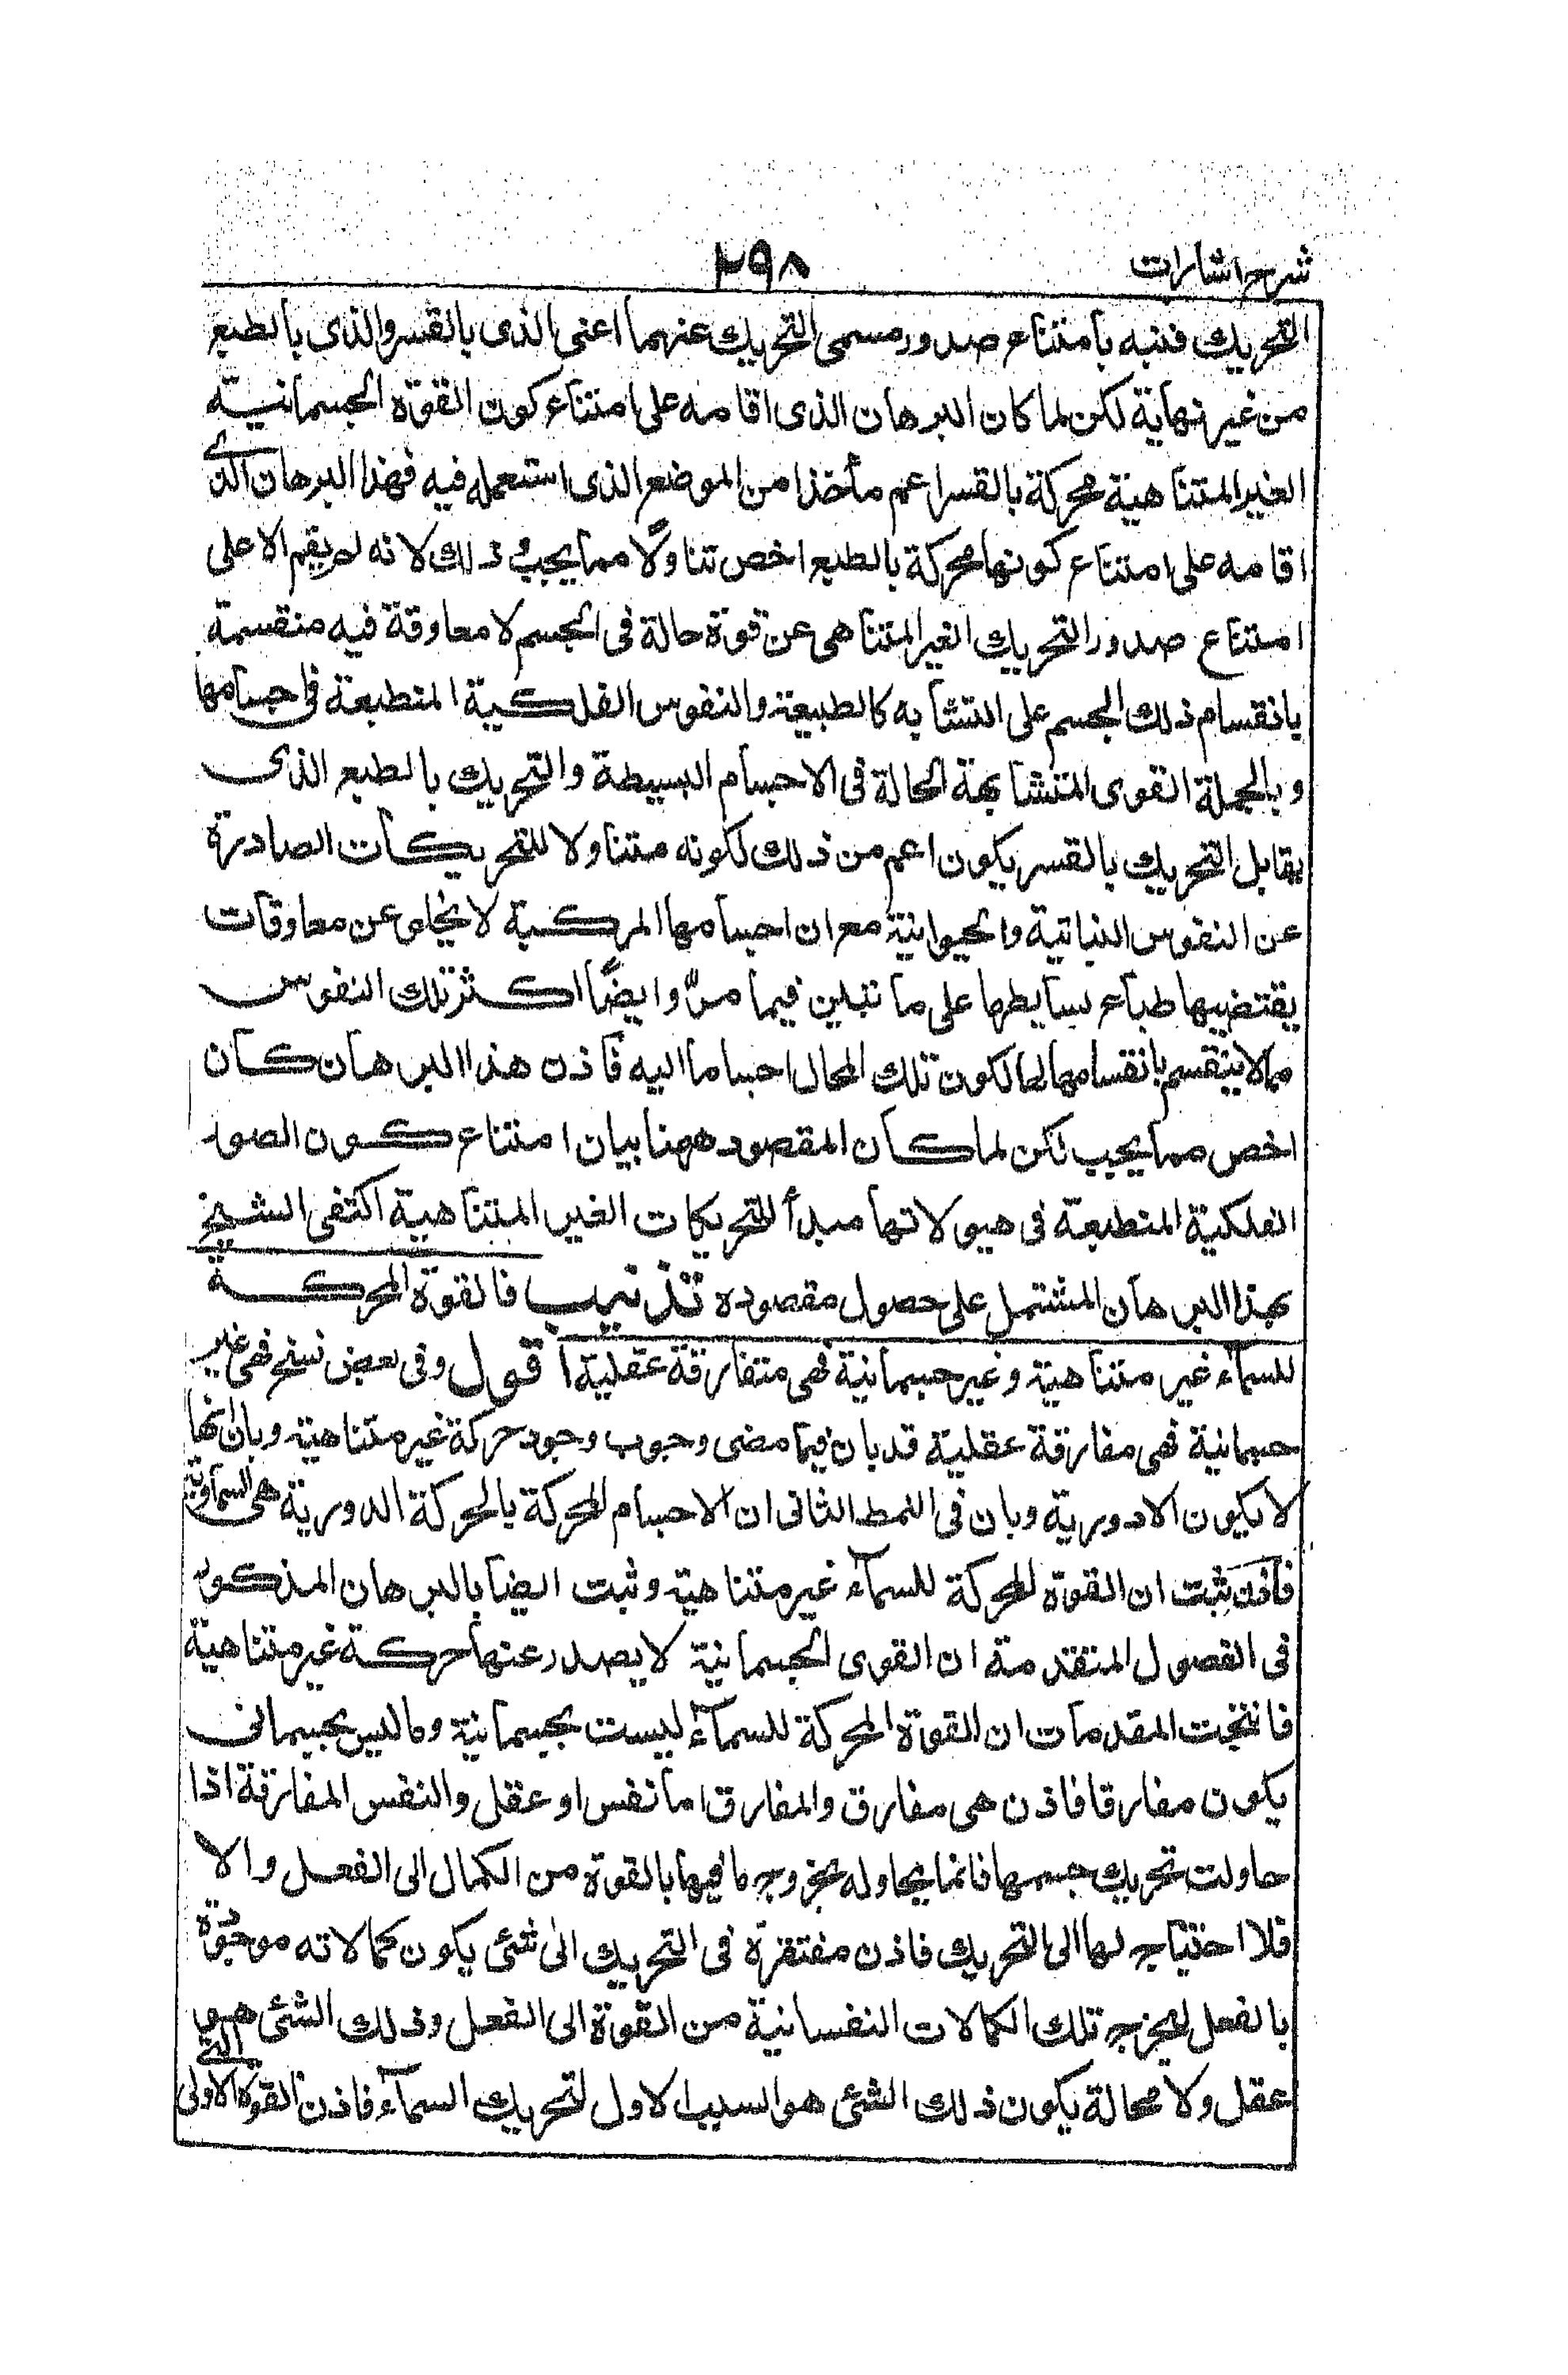 شرح اشارات
٢٩٨
التحريك فنبه بامتناع صدور مسمى التحريك عنهما اعنى الذى بالقسر والذى بالطبع
من غير نهاية لكن لما كان البرهان الذى اقامه على امتناع كون القوة الجسمانية
الغير المتناهية محركة بالقسر اعم مأخذا من الموضع الذى استعمله فيه فهذا البرهان الذى
اقامه على امتناع كونها محركة بالطبع اخص تناولًا مما يجب و ذلك لانه لم يقم الا على
امتناع صدور التحريك الغير المتناهى عن قوة حالة فى الجسم لا معاوقة فيه منقسمة
بانقسام ذلك الجسم على التشابه كالطبيعة والنفوس الفلكية المنطبعة فى اجسامها
وبالجملة القوى المتشابهة الحالة فى الاجسام البسيطة والتحريك بالطبع الذى
يقابل التحريك بالقسر يكون اعم من ذلك لكونه متناولا للتحريكات الصادرة
عن النفوس النباتية والحيوانية مع ان اجسامها المركبة لا يخلو عن معاوقات
يقتضيها طبائع بسايطها على ما تبين فيما مرّ وايضًا اكثر تلك النفوس
مما لا ينقسم بانقسام محالها لكون تلك المحال اجساما اليه فاذن هذا البرهان كان
اخص مما يجب لكن لما كان المقصود ههنا بيان امتناع كون الصور
الفلكية المنطبعة فى هيولاتها مبدأ للتحريكات الغير المتناهية اكتفى الشيخ
بهذا البرهان المشتمل على حصول مقصوده تذنيب فالقوة المحركة
للسمآء غير متناهية وغير جسمانية فهى متفارقة عقلية اقول وفى بعض نسخ فهى غير
جسمانية فهى مفارقة عقلية قد بان فيما مضى وجوب وجود حركة غير متناهية وبان انها
لا يكون الا دورية وبان فى النمط الثانى ان الاجسام المحركة بالحركة الدورية هى السماوية
فاذن ثبت ان القوة المحركة للسمآء غير متناهية وثبت ايضا بالبرهان المذكور
فى الفصول المتقدمة ان القوى الجسمانية لا يصدر عنها حركة غير متناهية
فانتجت المقدمات ان القوة المحركة للسمآء ليست بجسمانية وما ليس بجسمانى
يكون مفارقا فاذن هى مفارق والمفارق اما نفس او عقل والنفس المفارقة اذا
حاولت تحريك جسمها فانما يحاوله بخروج ما فيها بالقوة من الكمال الى الفعل والا
فلا احتياج لها الى التحريك فاذن مفتقرة فى التحريك الى شئ يكون كمالاته موجودة
بالفعل ليخرج تلك الكمالات النفسانية من القوة الى الفعل وذلك الشئ هو
عقل ولا محالة يكون ذلك الشئ هو السبب الاول لتحريك السمآء فاذن القوة الاولى التى